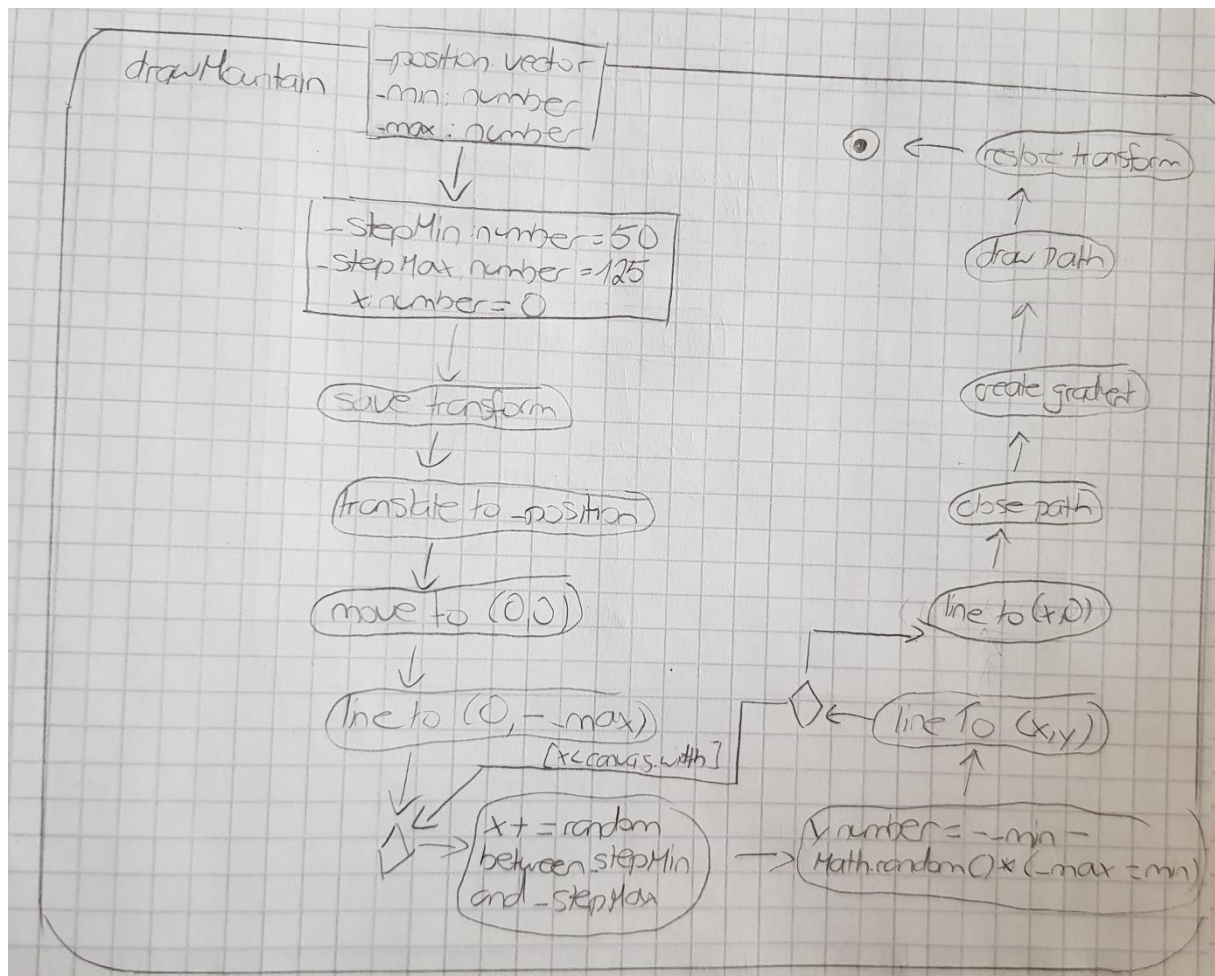 drawMountain
-position: vector
-min: number
-max: number
-stepMin: number = 50
-stepMax: number = 125
x: number = 0
save transform
translate to _position
move to (0,0)
line to (0, -_max)
[x<canvas.with]
x+ = random
between_stepMin
and _stepMax
y number = -_min -
Math.random() * (_max - _min)
line To (x,y)
line to (x,0)
close path
create gradient
draw path
restore transform